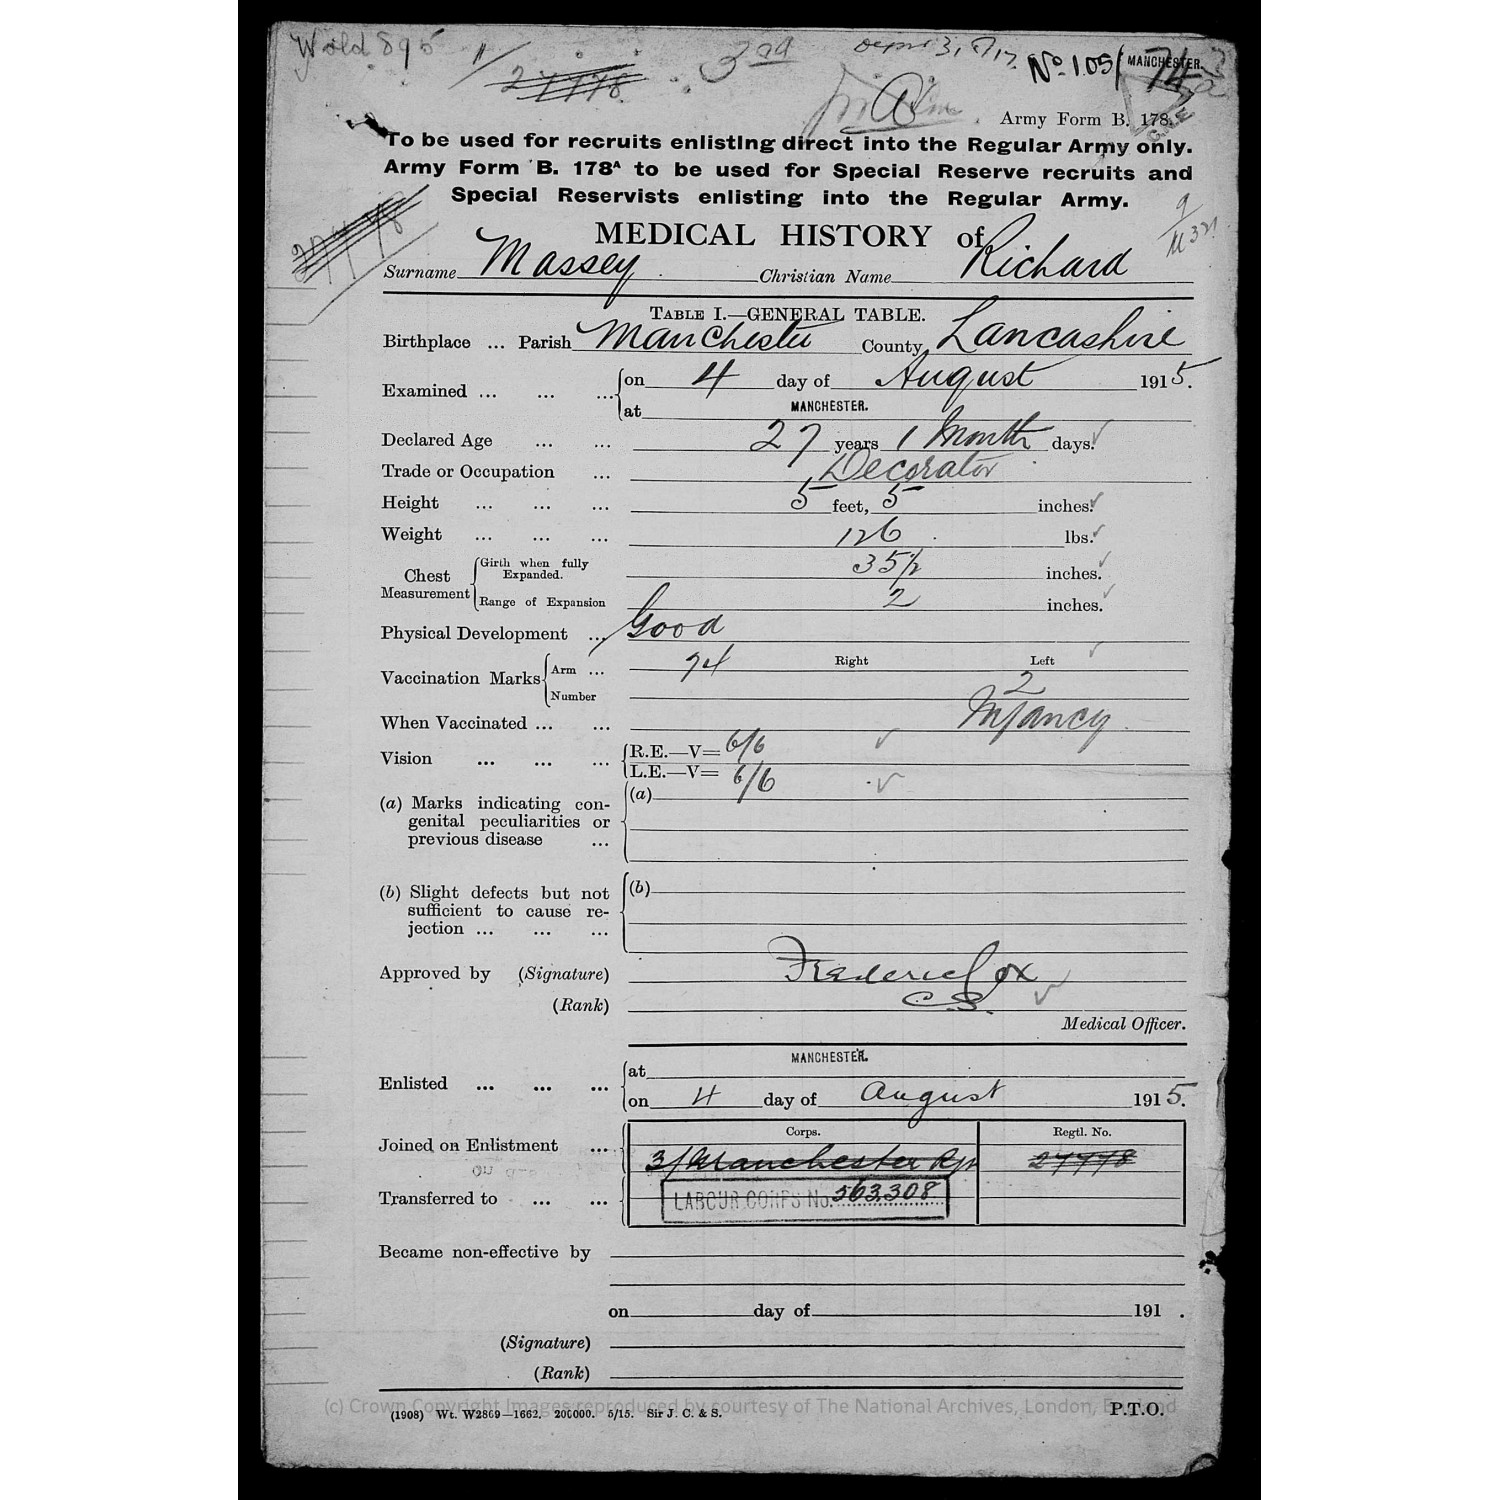 Wold 895
27778
3rd
No. 105/ MANCHESTER. 74
Army Form B. 178.
To be used for recruits enlisting direct into the Regular Army only.
Army Form B. 178A to be used for Special Reserve recruits and
Special Reservists enlisting into the Regular Army.
27778
MEDICAL HISTORY of
Surname Massey Christian Name Richard
TABLE I.—GENERAL TABLE.
Birthplace ... Parish Manchester County Lancashire
Examined ... ... ... on 4 day of August 1915.
at MANCHESTER.
Declared Age ... ... 27 years 1 Month days.
Trade or Occupation ... Decorator
Height ... ... ... 5 feet, 5 inches.
Weight ... ... ... 126 lbs.
Chest Measurement Girth when fully Expanded. 35½ inches.
Range of Expansion 2 inches.
Physical Development ... Good
Vaccination Marks Arm ... Right Left
Number 2
When Vaccinated ... ... Infancy
Vision ... ... ... R.E.—V= 6/6
L.E.—V= 6/6
(a) Marks indicating con- (a)
genital peculiarities or
previous disease ...
(b) Slight defects but not (b)
sufficient to cause re-
jection ... ... ...
Approved by (Signature) Frederic Cox
(Rank) C.S.
Medical Officer.
MANCHESTER.
Enlisted ... ... ... at
on 4 day of August 1915.
Corps. Regtl. No.
Joined on Enlistment ... 3/Manchester Rgt 27778
Transferred to ... ... LABOUR CORPS No. 563308
Became non-effective by
on day of 191 .
(Signature)
(Rank)
(c) Crown Copyright Images reproduced by courtesy of The National Archives, London, England
(1908) Wt. W2869—1662. 200000. 5/15. Sir J. C. & S. P.T.O.